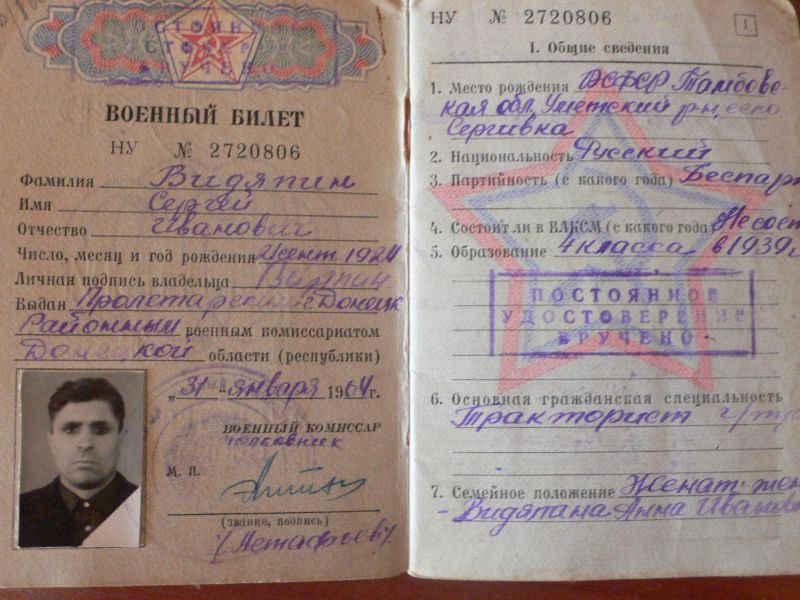 ВОЕННЫЙ БИЛЕТ
НУ № 2720806
Фамилия Видяпин
Имя Сергей
Отчество Иванович
Число, месяц и год рождения 1924
Личная подпись владельца
Выдан Пролетарским г. Донецк
Районным военным комиссариатом
Донецкой области (республики)
„31" января 1964 г.
ВОЕННЫЙ КОМИССАР
полковник
М. П.
(звание, подпись)
НУ № 2720806
1
I. Общие сведения
1. Место рождения РСФСР Тамбовс-
кая обл. Уметский р-н, село
Сергиевка
2. Национальность Русский
3. Партийность (с какого года) Беспарт
4. Состоит ли в ВЛКСМ (с какого года) Не сост
5. Образование 4 класса в 1939 г
ПОСТОЯННОЕ
УДОСТОВЕРЕНИЕ
ВРУЧЕНО
6. Основная гражданская специальность
Тракторист
7. Семейное положение Женат жен
- Видяпина Анна Иванов